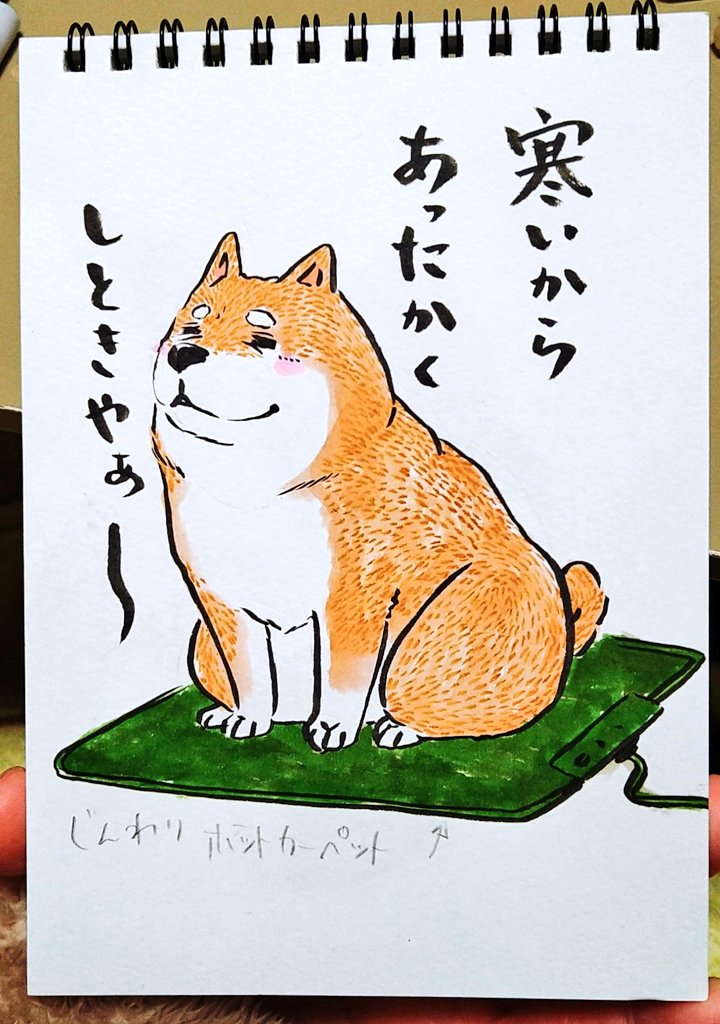 寒いから
あったかく
しときやぁ〜
じんわり ホットカーペット